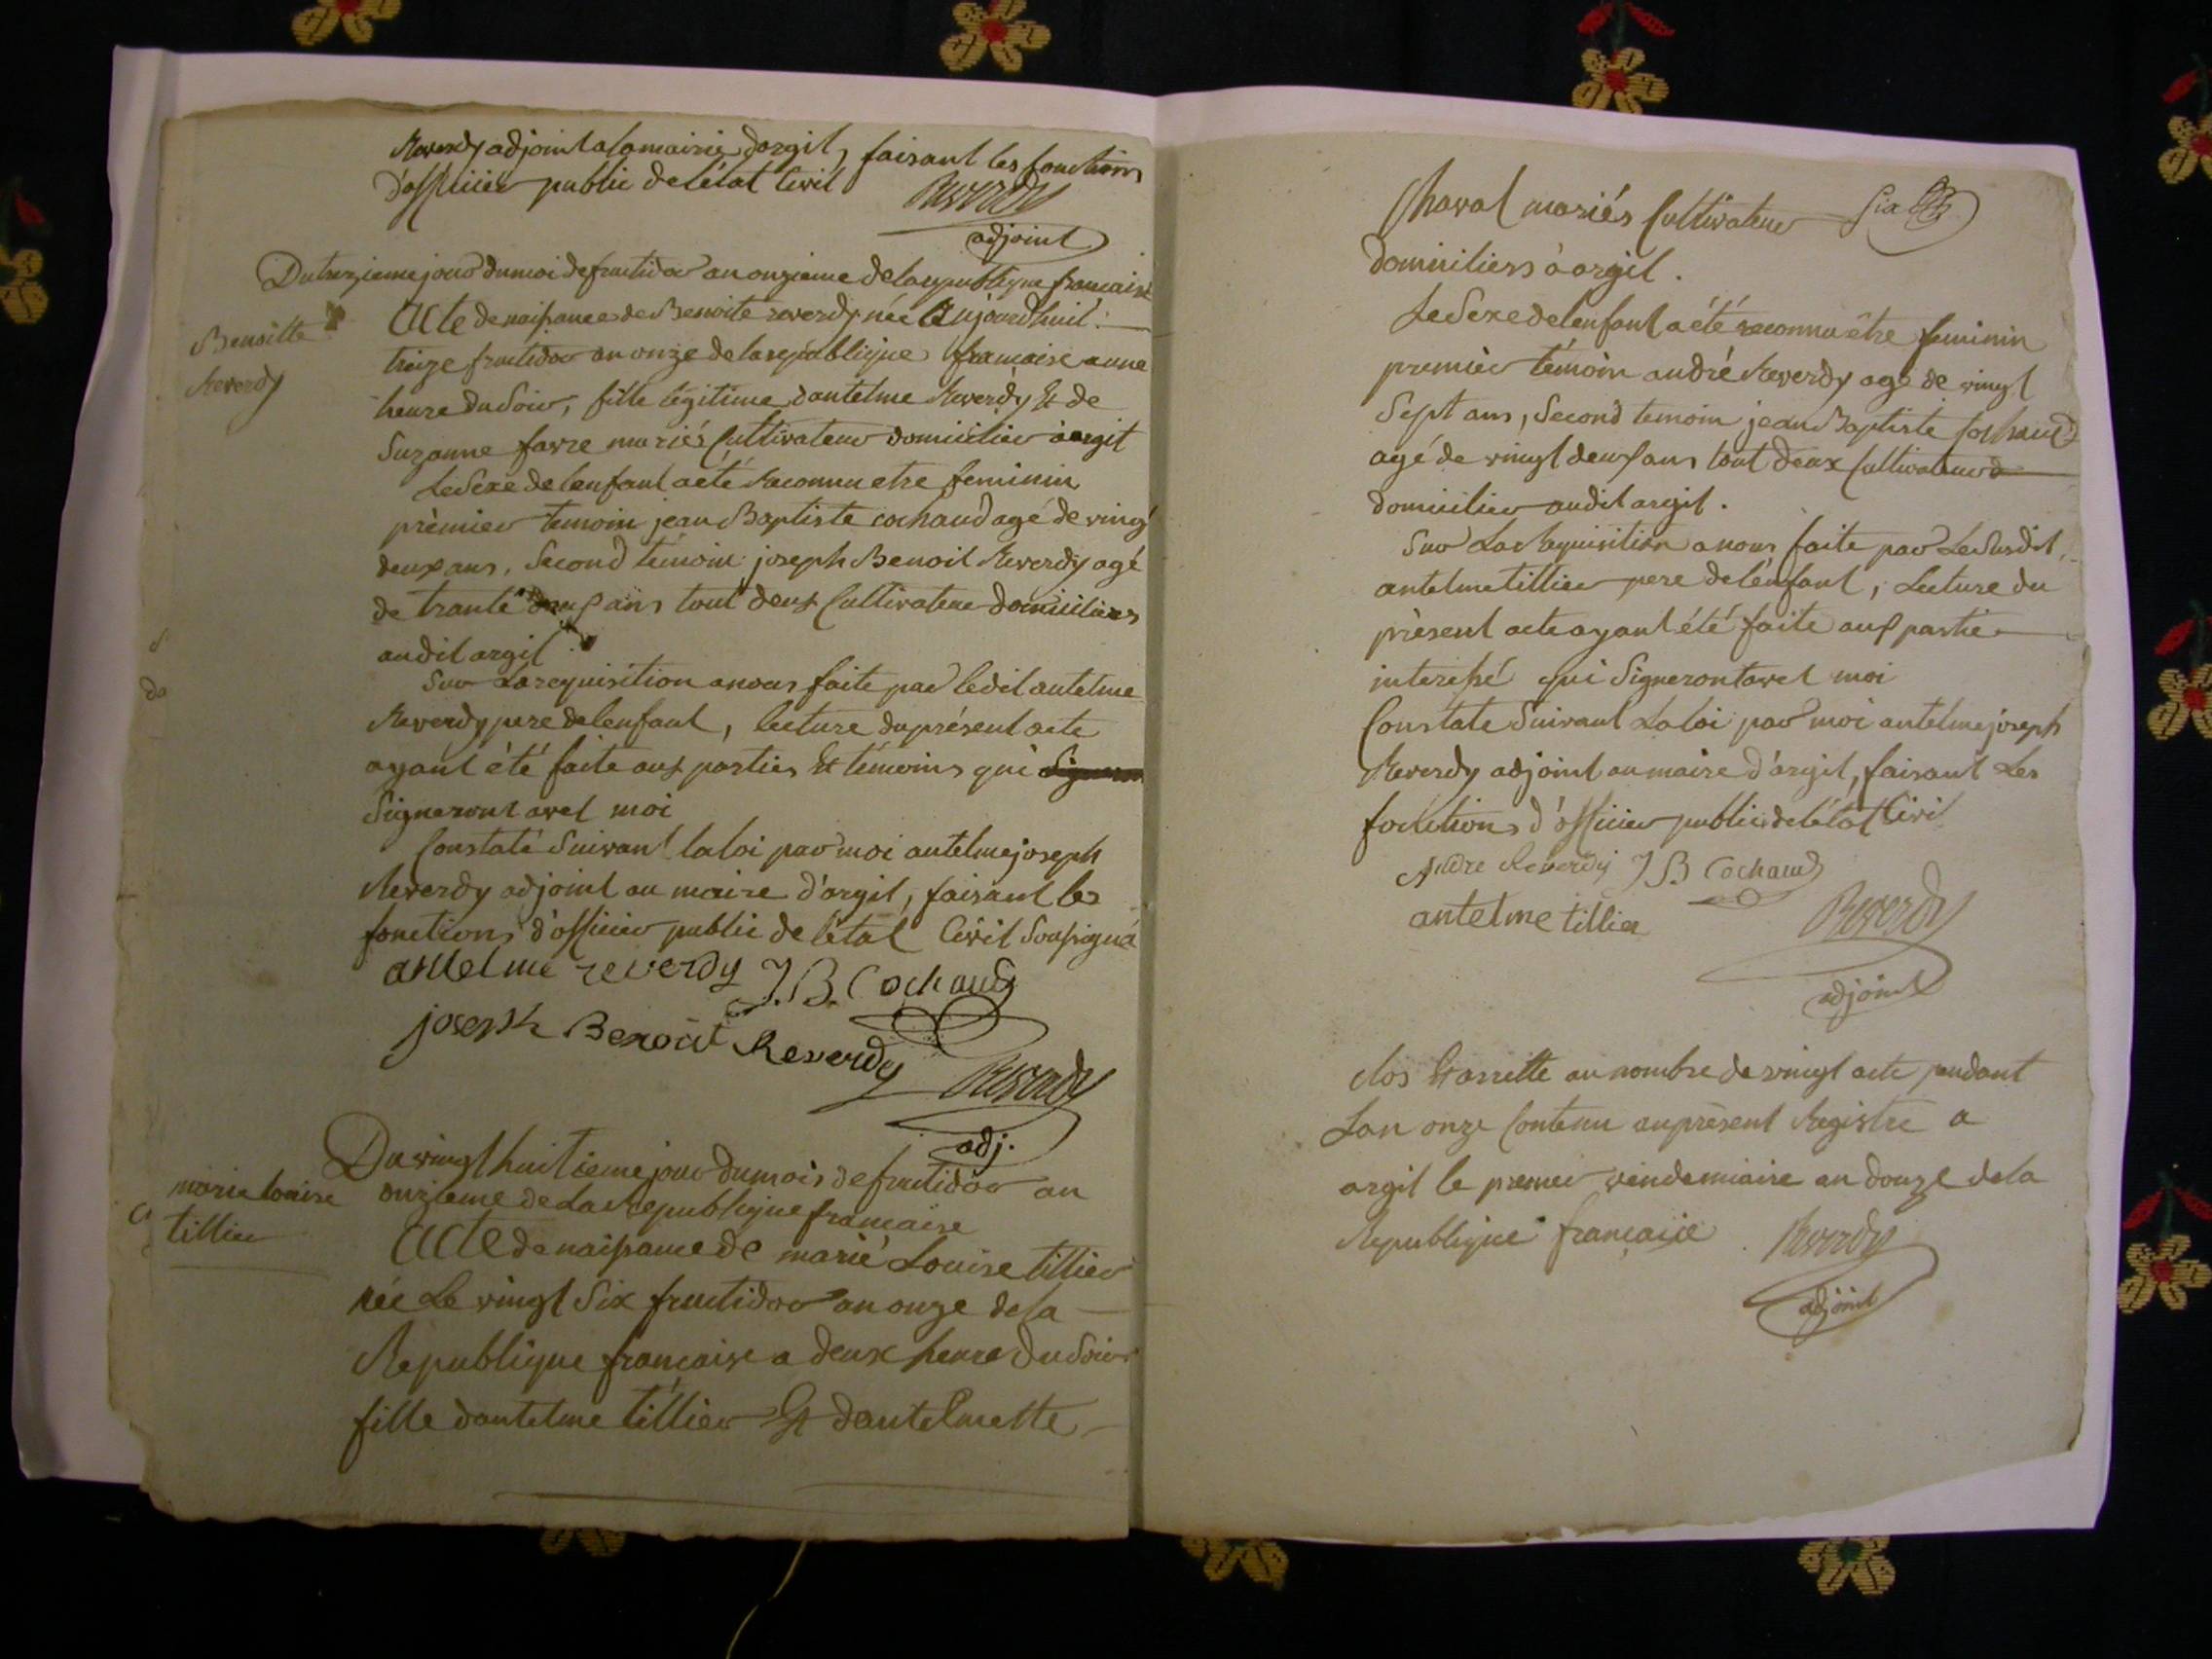 Reverdy adjoint a la mairie dargil, faisant les fonctions
d'officier public de l'état Civil
Reverdy
adjoint
Du treizieme jour du moi de fructidor an onzieme de la republique francaise
Benoitte
Reverdy
Acte de naissance de Benoite reverdy née Aujourdhuit
treize fructidor an onze de la république francaise a une
heure du Soir, fille légitime dantelme Reverdy Et de
Suzanne favre mariés Cultivateur domicilier à argit
Le Sexe de lenfant a eté Reconnu etre feminin
prèmier temoin jean Baptiste cochaud agé de ving
deux ans, Second témoin joseph Benoit Reverdy agé
de trante ans tout deux Cultivateur domiciliers
audit argil
Sur La requisition a nous faite par ledit antelme
Reverdy pere de lenfant, lecture du présent acte
ayant été faite aux parties Et témoins qui
Signeront avec moi
Constaté Suivant la loi par moi antelme joseph
Reverdy adjoint au maire d'argil, faisant les
fonctions d'officier public de l'état Civil Soussigné
antelme reverdy J.B. Cochaud
joseph Benoit Reverdy
Reverdy
adj.
Du vingt huitieme jour du mois de fructidor an
onzieme de La Republique francaise
marie louise
tillier
Acte de naissance de marie Louise tillier
née Le vingt Six fructidor an onze de la
Republique francaise a deux heure du Soir
fille dantelme tillier Et dantelmette
Chaval mariés Cultivateur
Six
domiciliers à argil.
Le Sexe de lenfant a été reconnu être feminin
premier témoin andré Reverdy agé de vingt
Sept ans, Second temoin jean Baptiste Cochaud
agé de vingt deux ans tout deux Cultivateur
domicilier audit argil.
Sur La Requisition a nous faite par Le Susdit
antelme tillier pere de l'enfant, Lecture du
prèsent acte ayant été faite aux partie
interessé qui Signeront avec moi
Constaté Suivant La loi par moi antelme joseph
Reverdy adjoint au maire d'argil, faisant Les
fonctions d'officier public de l'état Civil
Andre Reverdy J B Cochaud
antelme tillier
Reverdy
adjoint
clos Et arrette au nombre de vingt acte pendant
Lan onze Contenu au prèsent Registre a
argil le premier vendemiaire an douze de la
Republique française
Reverdy
adjoint